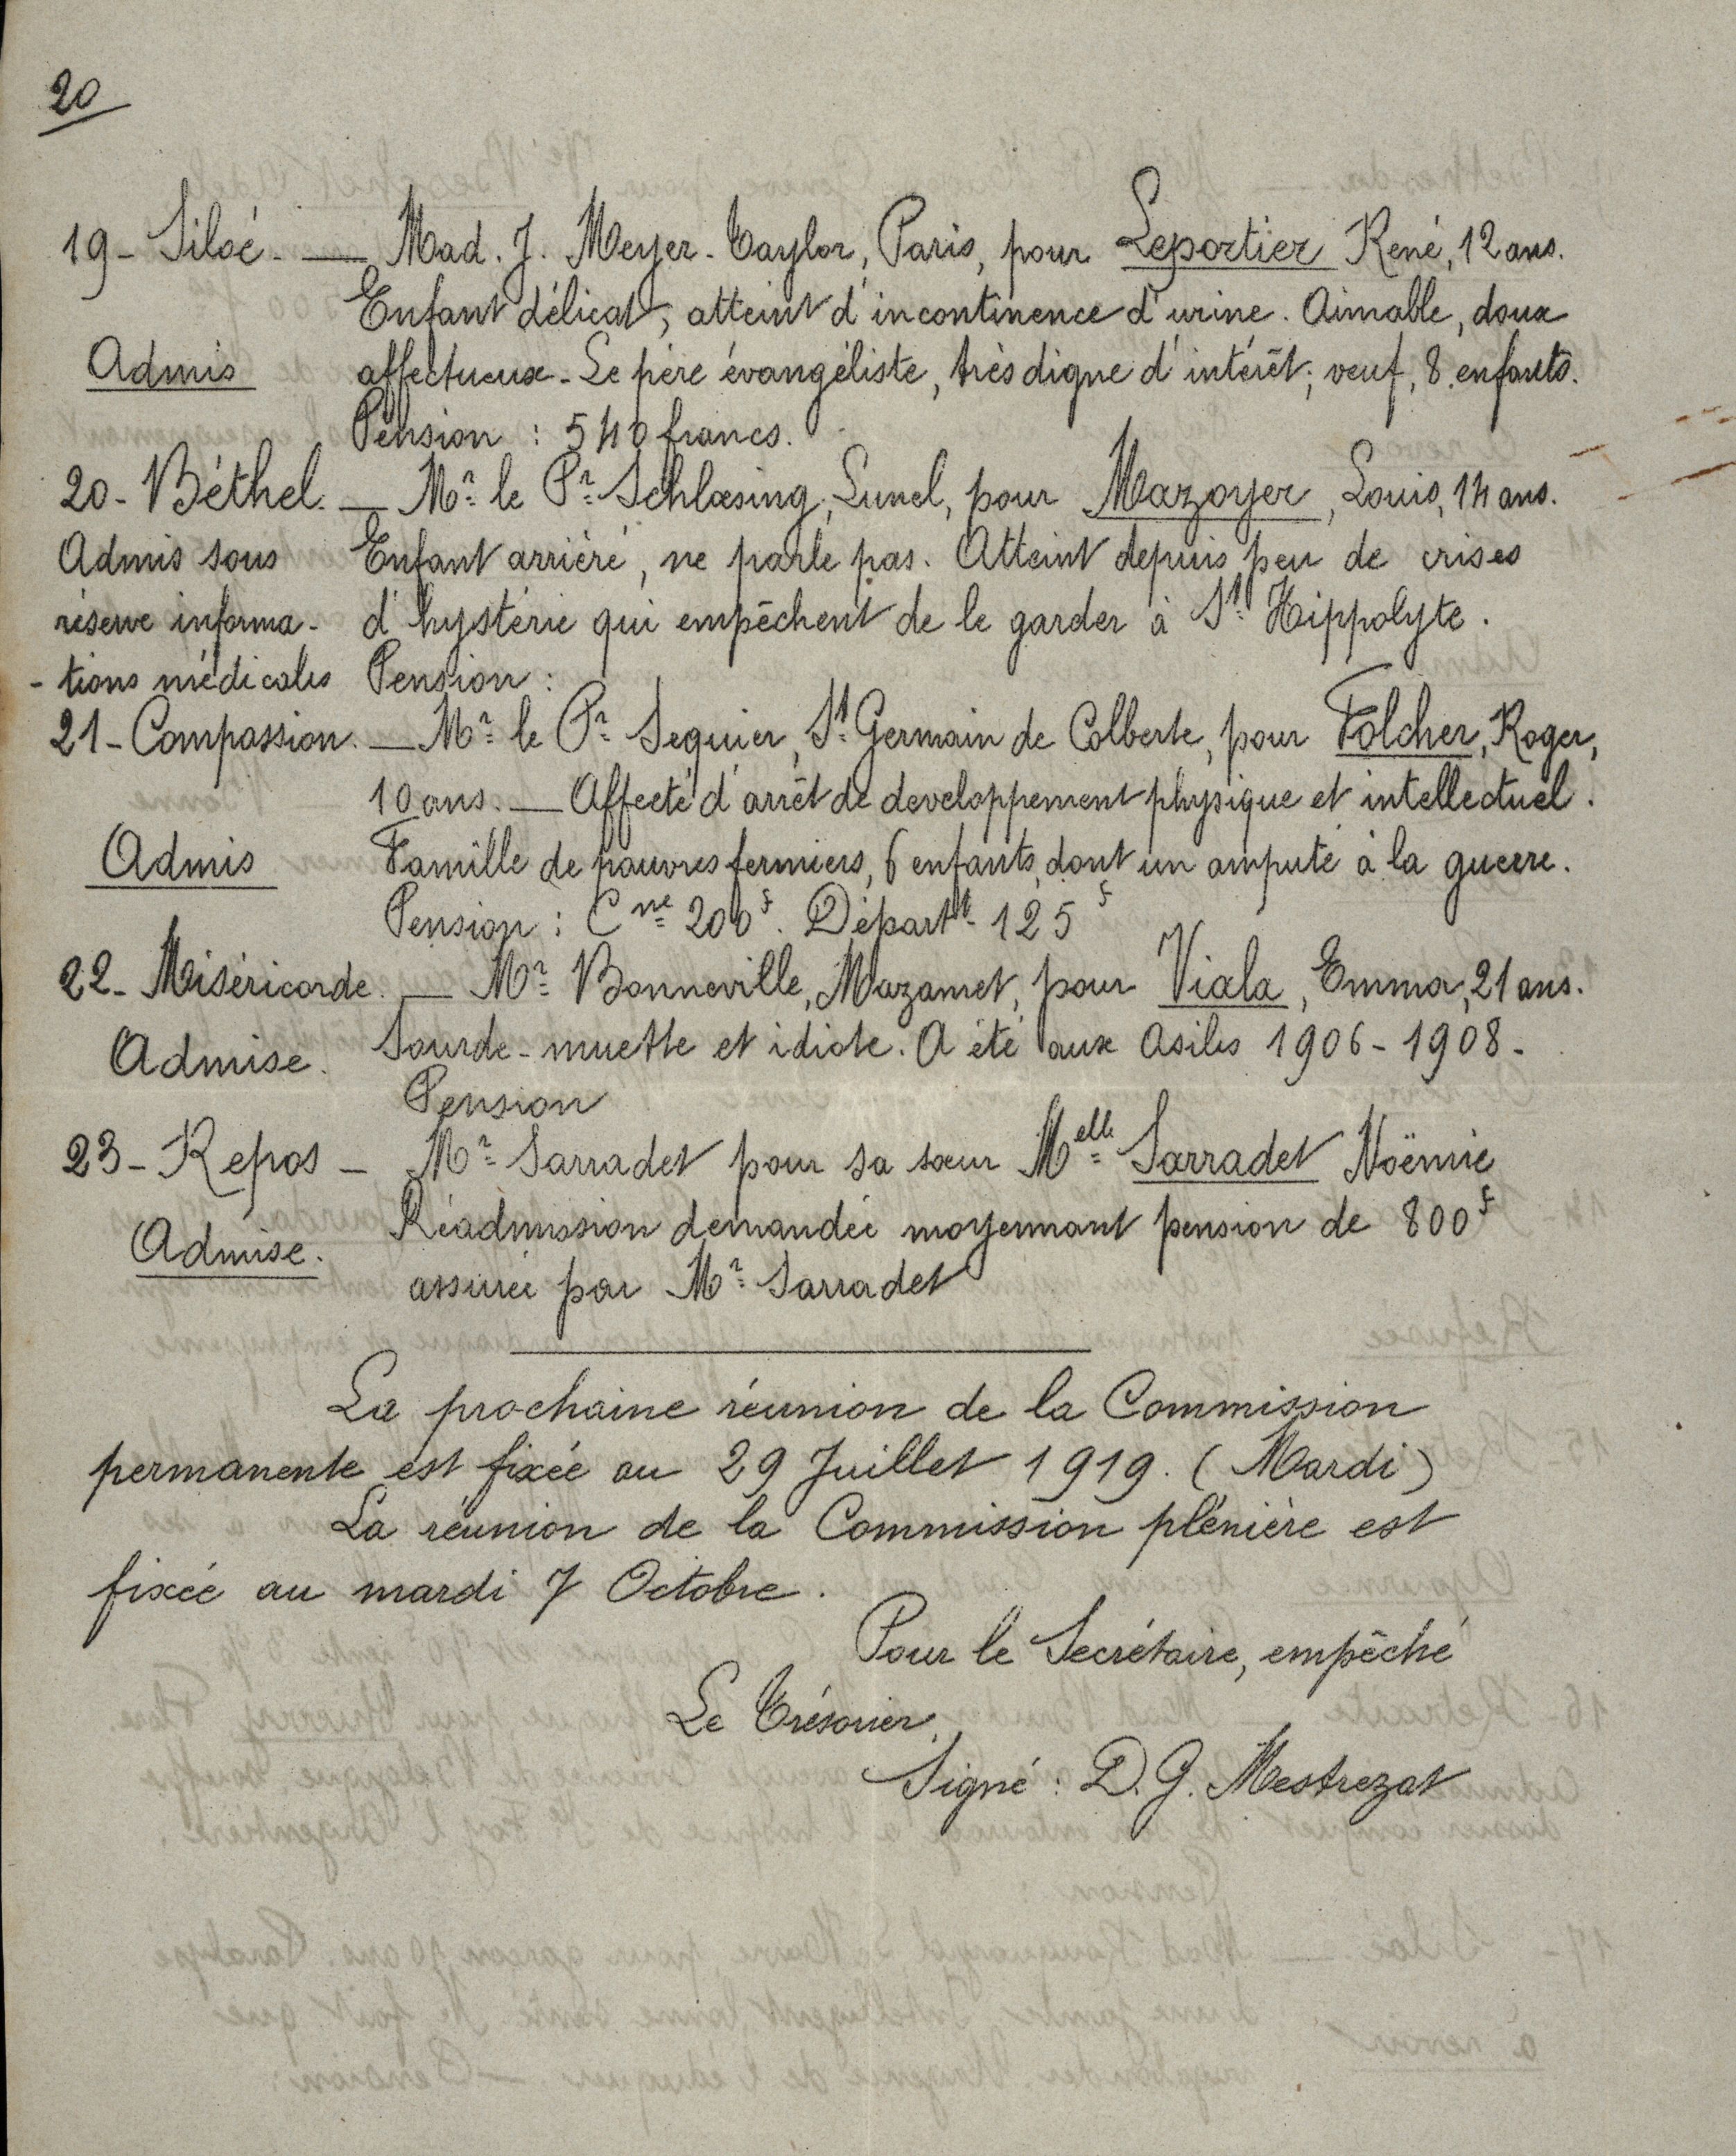 20
19 - Siloé. — Mad. J. Meyer-Taylor, Paris, pour Leportier René, 12 ans.
Enfant délicat, atteint d'incontinence d'urine. Aimable, doux
Admis affectueux - Le père évangéliste, très digne d'intérêt; veuf, 8 enfants.
Pension : 540 francs.
20 - Béthel. — Mr. le Pr. Schlœsing, Lunel, pour Mazoyer, Louis, 14 ans.
Admis sous Enfant arriéré, ne parle pas. Atteint depuis peu de crises
réserve informa- d'hystérie qui empêchent de le garder à St. Hippolyte.
-tions médicales Pension :
21 - Compassion. — Mr. le Pr. Seguier, St. Germain de Calberte, pour Folcher, Roger,
10 ans. — Affecté d'arrêt de developpement physique et intellectuel.
Admis Famille de pauvres fermiers, 6 enfants, dont un amputé à la guerre.
Pension : Cne 200f. Départt. 125f
22 - Miséricorde. — Mr. Bonneville, Mazamet, pour Viala, Emma, 21 ans.
Admise. Sourde-muette et idiote. A été aux Asiles 1906 - 1908 -
Pension
23 - Repos - Mr. Sarradet pour sa sœur Melle Sarradet Noëmie
Réadmission demandée moyennant pension de 800f
Admise. assurée par Mr. Sarradet
La prochaine réunion de la Commission
permanente est fixée au 29 Juillet 1919. (Mardi)
La réunion de la Commission plénière est
fixée au mardi 7 Octobre.
Pour le Secrétaire, empêché
Le Trésorier,
Signé : D. G. Mestrezat